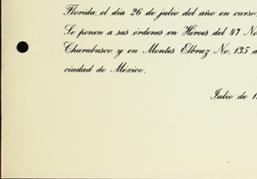 Florida, el día 26 de julio del año en curso
Se ponen a sus órdenes en Héroes del 47 No
Churubusco y en Montes Elbruz No. 135 d
ciudad de México.
Julio de 1